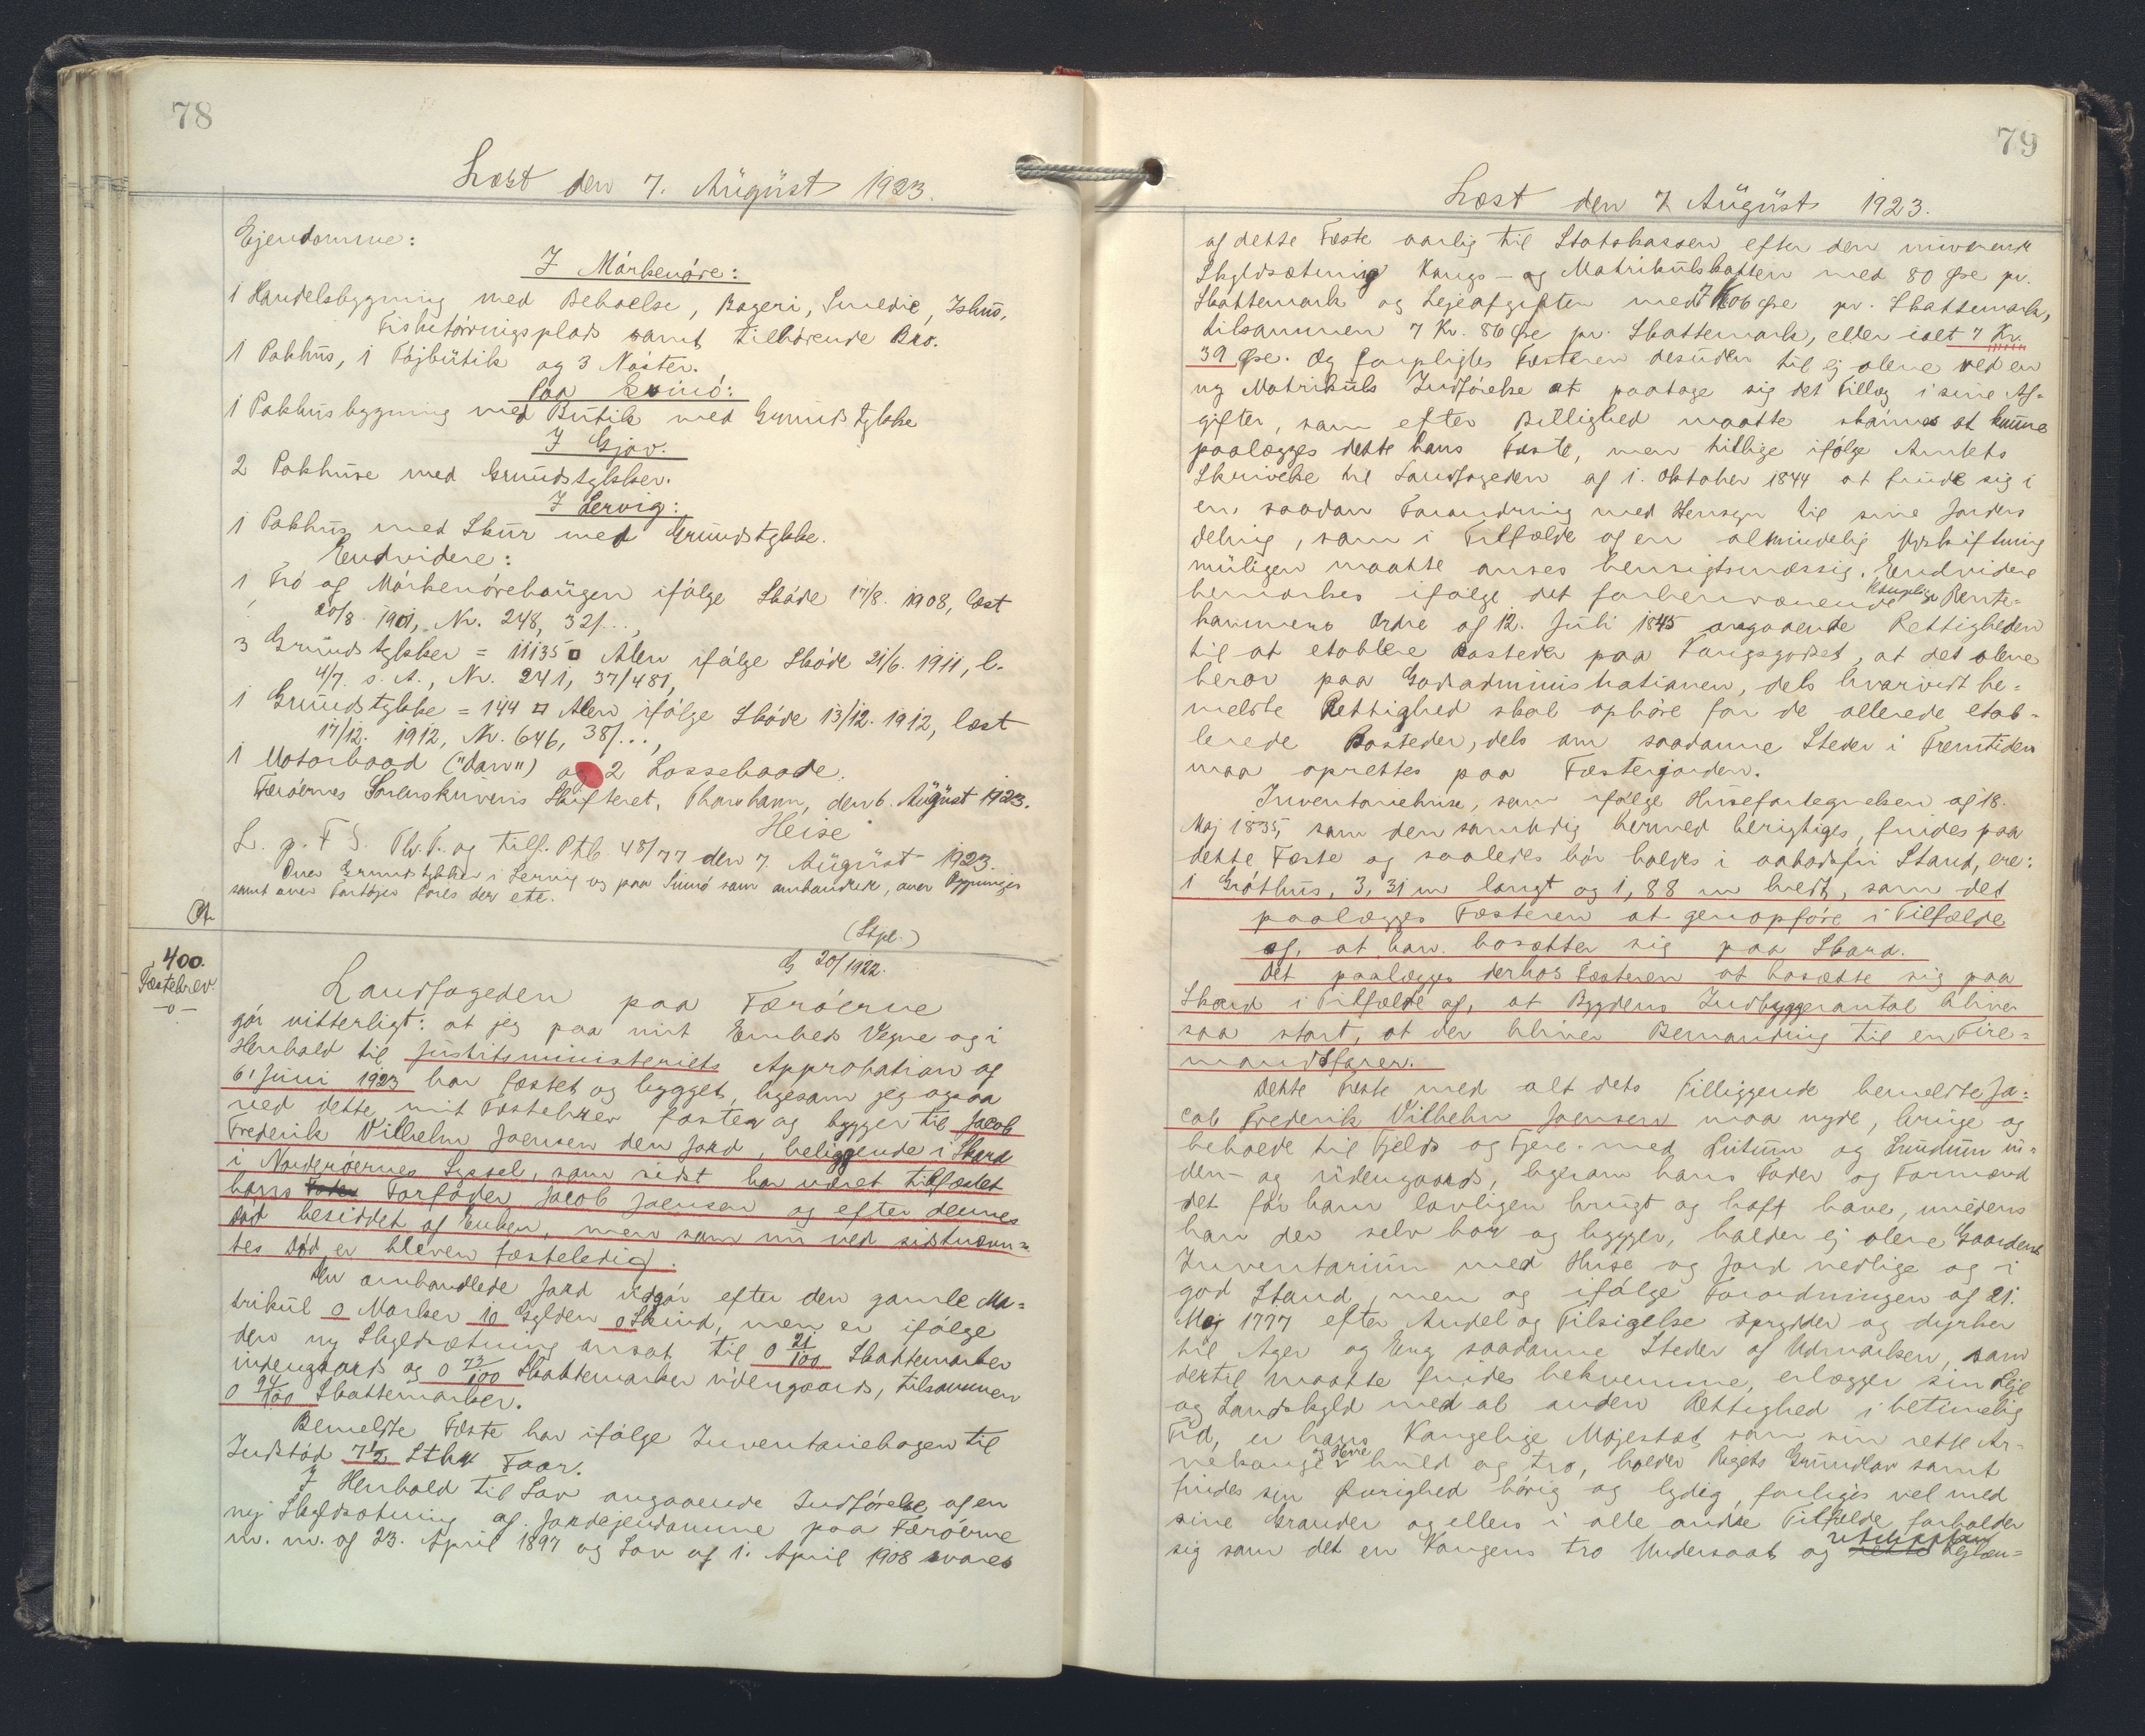 78
Læst den 7. August 1923.
Ejendomme:
I Mórkenóre:
1 Handelsbygning med Beboelse, Bageri, Smedie, Ishus,
Fisketórringsplads samt tilhórende Bro.
1 Pakhus, 1 Tójbutik og 3 Nóster.
Paa Svinó:
1 Pakhusbygning med Butik med Grundstykke
I Gjov.
2 Pakhuse med Grundstykker.
I Lervig:
1 Pakhus med Skur med Grundstykke.
Endvidere:
1 Tró af Mórkenórehaugen ifólge Skóde 17/8. 1908, læst
20/8. 1901, Nr. 248, 32/...,
3 Grundstykker = 11135 □ Alen ifólge Skóde 21/6. 1911, l.
4/7. s. A., Nr. 241, 37/481,
1 Grundstykke = 144 □ Alen ifólge Skóde 13/12. 1912, læst
17/12. 1912, Nr. 646, 38/...,
1 Motorbaad ("dan") og 2 Lossebaade.
Færóernes Sorenskriveris Skifteret, Thorshavn, den 6. August 1923.
Heise
L. p. F. S. Th. T. og tilf. Ptb. 48/77 den 7. August 1923.
Over Grundstykker i Lervig og paa Svinó som ombandlede, over Bygninger
samt over Fartójer fores der ete.
(Stpl.)
G 20/1922.
400.
Fæstebrev.
-o-
Landfogeden paa Færóerne
gór vitterligt: at jeg paa mit Embeds Vegne og i
Henhold til Justitsministeriets Approbation af
6' Juni 1923 har fæstet og bygget, ligesom jeg ogsaa
ved dette mit Fæstebrev fæster og bygger til Jacob
Frederik Vilhelm Joensen den Jord, beliggende i Skard
i Norderóernes Syssel, som sidst har været tilfæstet
hans Fader Farfader Jacob Joensen og efter dennes
Dód besiddet af Enken, men som nu ved sidstnævn=
tes Dód er bleven fæsteledig.
Den omhandlede Jord udgór efter den gamle Ma=
trikul 0 Marker 10 Gylden 0 Skind, men er ifólge
den ny Skyldsætning ansat til 0 21/100 Skattemarker
indengaards og 0 73/100 Skattemarker udengaards, tilsammen
0 94/100 Skattemarker.
Bemeldte Fæste har ifólge Inventariebogen til
Indstód 7 1/2 Stkr Faar.
I Henhold til Lov angaaende Indfórelse af en
ny Skyldsætning af Jordejendomme paa Færóerne
m. m. af 23. April 1897 og Lov af 1. April 1908 svares
79
Læst den 7 August 1923.
af dette Fæste aarlig til Statskassen efter den nuværende
Skyldsætning Kongs- og Matrikulskatten med 80 Øre pr.
Skattemark og Lejeafgiften med 7 Kr 06 Øre pr. Skattemark,
tilsammen 7 Kr. 86 Øre pr. Skattemark, eller ialt 7 Kr.
39 Øre. Og forpligtes Fæsteren desuden til ej alene ved en
ny Matrikuls Indfórelse at paatage sig det Tillæg i sine Af=
gifter, som efter Billighed maatte skónnes at kunne
paalægges dette hans Fæste, men tillige ifólge Amtets
Skrivelse til Landfogeden af 1. Oktober 1844 at finde sig i
en saadan Forandring med Hensyn til sine Jorders
deling, som i Tilfælde af en almindelig Udskiftning
muligen maatte anses hensigtsmæssig. Endvidere
bemærkes ifólge det forhenværende kongelige Rente=
kammers Ordre af 12. Juli 1845 angaaende Rettigheden
til at etablere Bosteder paa Kongsgodset, at det alene
beror paa Godsadministrationen, dels hvorvidt be=
meldte Rettighed skal ophóre for de allerede etab=
lerede Bosteder, dels om saadanne Steder i Fremtiden
maa oprettes paa Fæstejorden.
Inventariehuse, som ifólge Husefortegnelsen af 18.
Maj 1835, som den samtidig hermed berigtiges, findes paa
dette Fæste og saaledes bór holdes i aabodsfri Stand, ere:
1 Gróthus, 3,31 m langt og 1,88 m bredt, som det
paalægges Fæsteren at genopfóre i Tilfælde
af, at han bosætter sig paa Skard.
Det paalægges derhos Fæsteren at bosætte sig paa
Skard i Tilfælde af, at Bygdens Indbyggerantal bliver
saa stort, at der bliver Bemanding til en Fire=
mandsfarer.
Dette Fæste med alt dets Tilliggende bemeldte Ja=
cob Frederik Vilhelm Joensen maa nyde, bruge og
beholde til Fjelds og Fjere med Lutum og Lundum in=
den- og udengaards, ligesom hans Fader og Formænd
det fór ham lovligen brugt og haft have, imedens
han der selv bor og bygger, holder ej alene Gaardens
Inventarium med Huse og Jord vedlige og i
god Stand, men og ifólge Forordningen af 21.
Maj 1777 efter Andel og Tilsigelse opryder og dyrker
til Ager og Eng saadanne Steder af Udmarken, som
dertil maatte findes bekvemme, erlægger sin Leje
og Landskyld med al anden Rettighed i betimelig
Tid, er hans Kongelige Majestæt som sin rette Ar=
vekonge og Herre huld og tro, holder Rigets Grundlov samt
findes sin Óvrighed hórig og lydig, forliges vel med
sine Grander og ellers i alle andre Tilfælde forholder
sig som det en Kongens tro Undersaat og retskaffen Lejlæn=